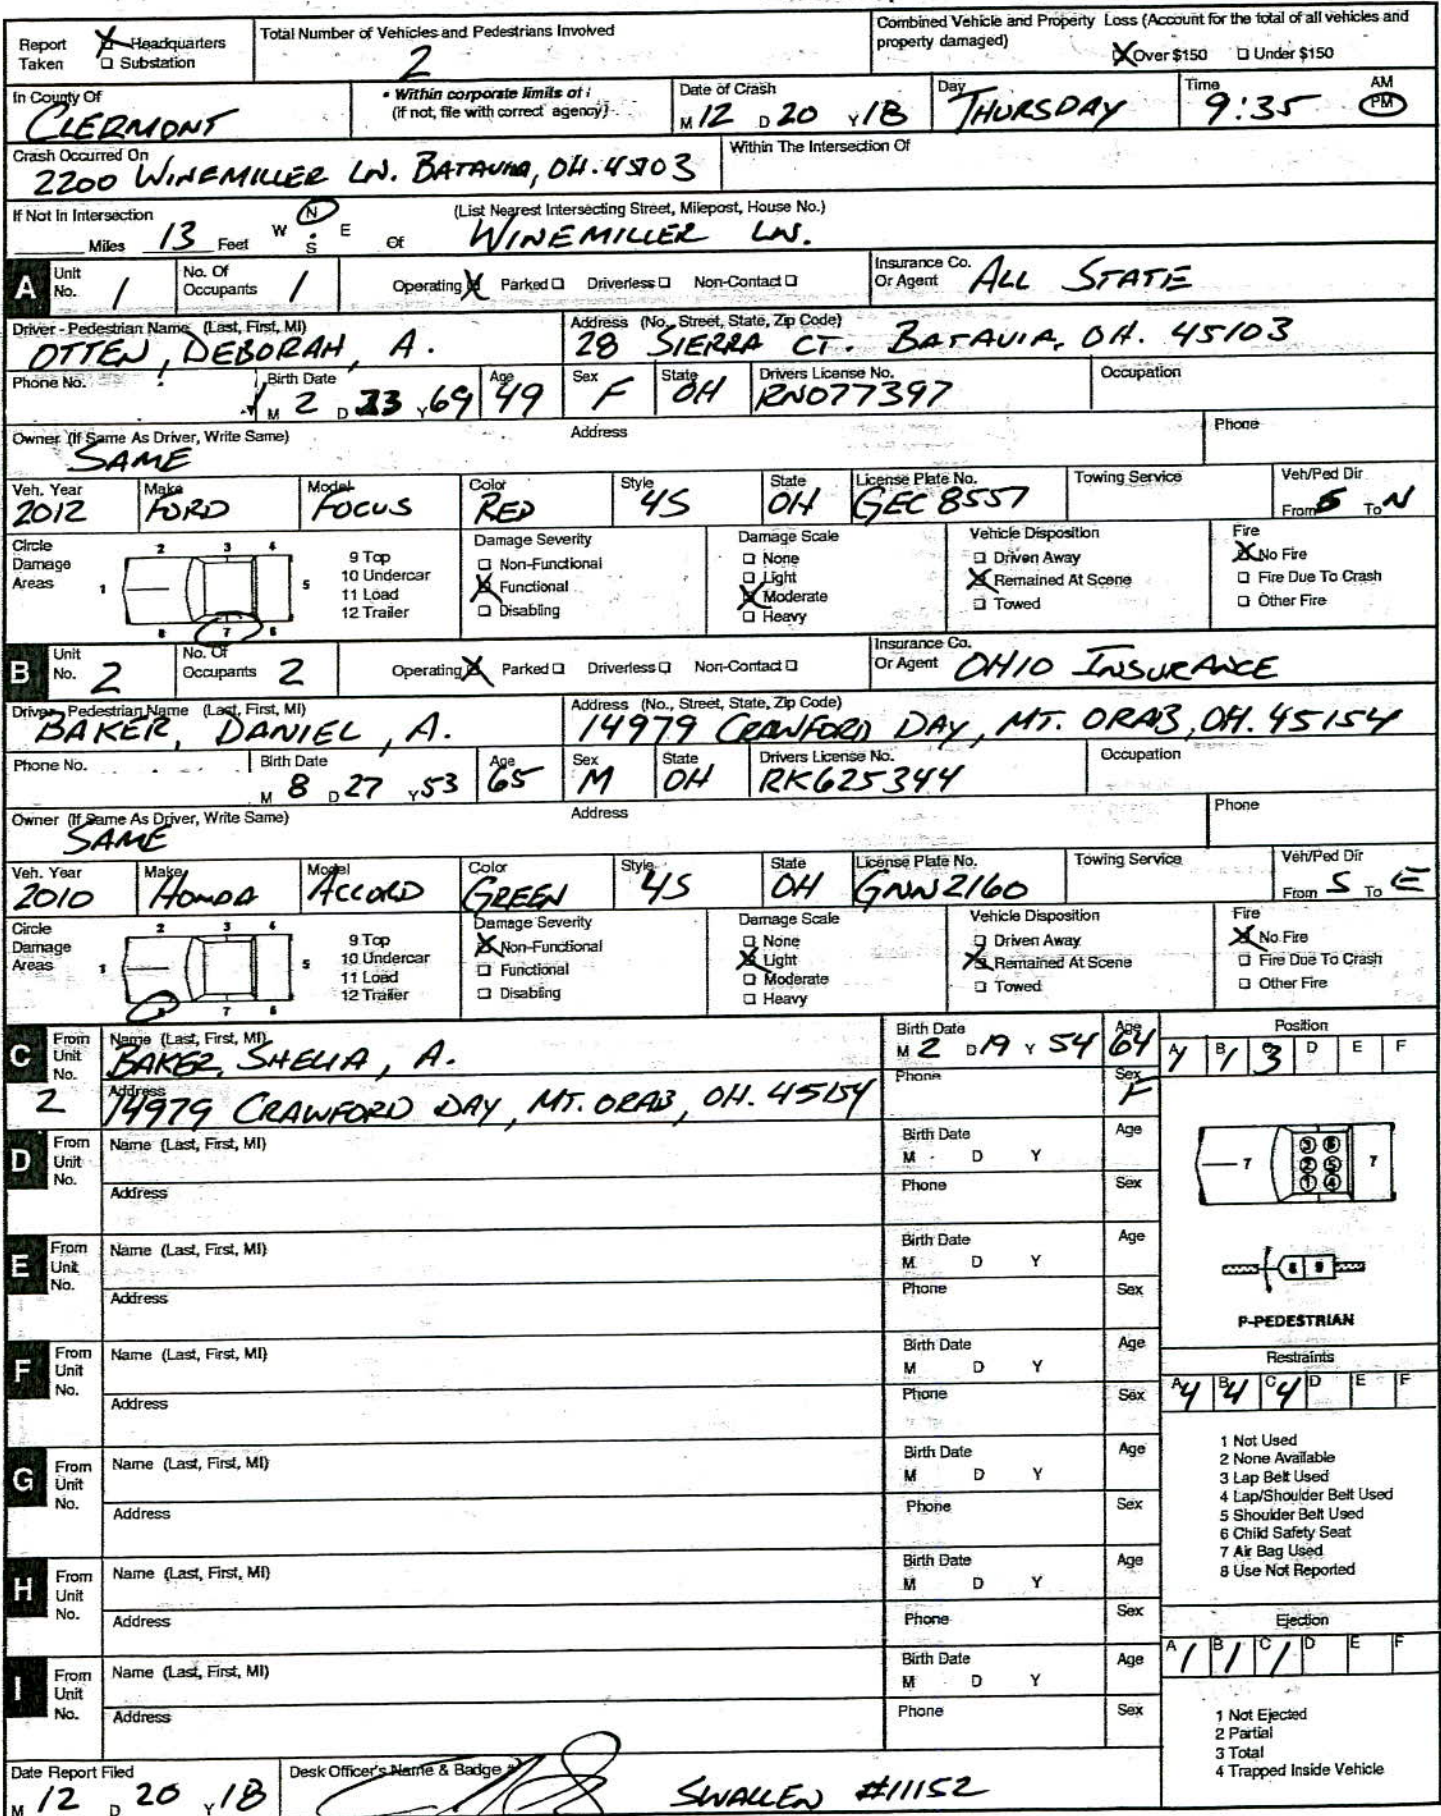 Report Taken Headquarters Substation
Total Number of Vehicles and Pedestrians Involved 2
Combined Vehicle and Property Loss (Account for the total of all vehicles and property damaged) Over $150 Under $150
In County Of CLERMONT
• Within corporate limits of : (if not, file with correct agency)
Date of Crash M 12 D 20 Y 18
Day THURSDAY
Time 9:35 AM PM
Crash Occurred On 2200 WINEMILLER LN. BATAVIA, OH. 45103
Within The Intersection Of
If Not In Intersection Miles 13 Feet W N S E Of
(List Nearest Intersecting Street, Milepost, House No.) WINEMILLER LN.
A Unit No. 1
No. Of Occupants 1
Operating Parked Driverless Non-Contact
Insurance Co. Or Agent ALL STATE
Driver - Pedestrian Name (Last, First, MI) OTTEN, DEBORAH, A.
Address (No., Street, State, Zip Code) 28 SIERRA CT. BATAVIA, OH. 45103
Phone No.
Birth Date M 2 D 23 Y 69
Age 49
Sex F
State OH
Drivers License No. RN077397
Occupation
Owner (If Same As Driver, Write Same) SAME
Address
Phone
Veh. Year 2012
Make FORD
Model FOCUS
Color RED
Style 4S
State OH
License Plate No. GEC 8557
Towing Service
Veh/Ped Dir From S To N
Circle Damage Areas
1 2 3 4 5 6 7 8
9 Top
10 Undercar
11 Load
12 Trailer
Damage Severity
Non-Functional
Functional
Disabling
Damage Scale
None
Light
Moderate
Heavy
Vehicle Disposition
Driven Away
Remained At Scene
Towed
Fire
No Fire
Fire Due To Crash
Other Fire
B Unit No. 2
No. Of Occupants 2
Operating Parked Driverless Non-Contact
Insurance Co. Or Agent OHIO INSURANCE
Driver - Pedestrian Name (Last, First, MI) BAKER, DANIEL, A.
Address (No., Street, State, Zip Code) 14979 CRAWFORD DAY, MT. ORAB, OH. 45154
Phone No.
Birth Date M 8 D 27 Y 53
Age 65
Sex M
State OH
Drivers License No. RK625344
Occupation
Owner (If Same As Driver, Write Same) SAME
Address
Phone
Veh. Year 2010
Make HONDA
Model ACCORD
Color GREEN
Style 4S
State OH
License Plate No. GNN2160
Towing Service
Veh/Ped Dir From S To E
Circle Damage Areas
1 2 3 4 5 6 7 8
9 Top
10 Undercar
11 Load
12 Trailer
Damage Severity
Non-Functional
Functional
Disabling
Damage Scale
None
Light
Moderate
Heavy
Vehicle Disposition
Driven Away
Remained At Scene
Towed
Fire
No Fire
Fire Due To Crash
Other Fire
C From Unit No. 2
Name (Last, First, MI) BAKER, SHELIA, A.
Birth Date M 2 D 19 Y 54
Age 64
Address 14979 CRAWFORD DAY, MT. ORAB, OH. 45154
Phone
Sex F
Position
A 1 B 1 C 3 D E F
D From Unit No.
Name (Last, First, MI)
Birth Date M D Y
Age
Address
Phone
Sex
7 3 6 2 5 1 4 7
E From Unit No.
Name (Last, First, MI)
Birth Date M D Y
Age
Address
Phone
Sex
8 9
P-PEDESTRIAN
F From Unit No.
Name (Last, First, MI)
Birth Date M D Y
Age
Address
Phone
Sex
Restraints
A 4 B 4 C 4 D E F
1 Not Used
2 None Available
3 Lap Belt Used
4 Lap/Shoulder Belt Used
5 Shoulder Belt Used
6 Child Safety Seat
7 Air Bag Used
8 Use Not Reported
G From Unit No.
Name (Last, First, MI)
Birth Date M D Y
Age
Address
Phone
Sex
H From Unit No.
Name (Last, First, MI)
Birth Date M D Y
Age
Address
Phone
Sex
Ejection
A 1 B 1 C 1 D E F
I From Unit No.
Name (Last, First, MI)
Birth Date M D Y
Age
Address
Phone
Sex
1 Not Ejected
2 Partial
3 Total
4 Trapped Inside Vehicle
Date Report Filed M 12 D 20 Y 18
Desk Officer's Name & Badge # SWALLEN #11152